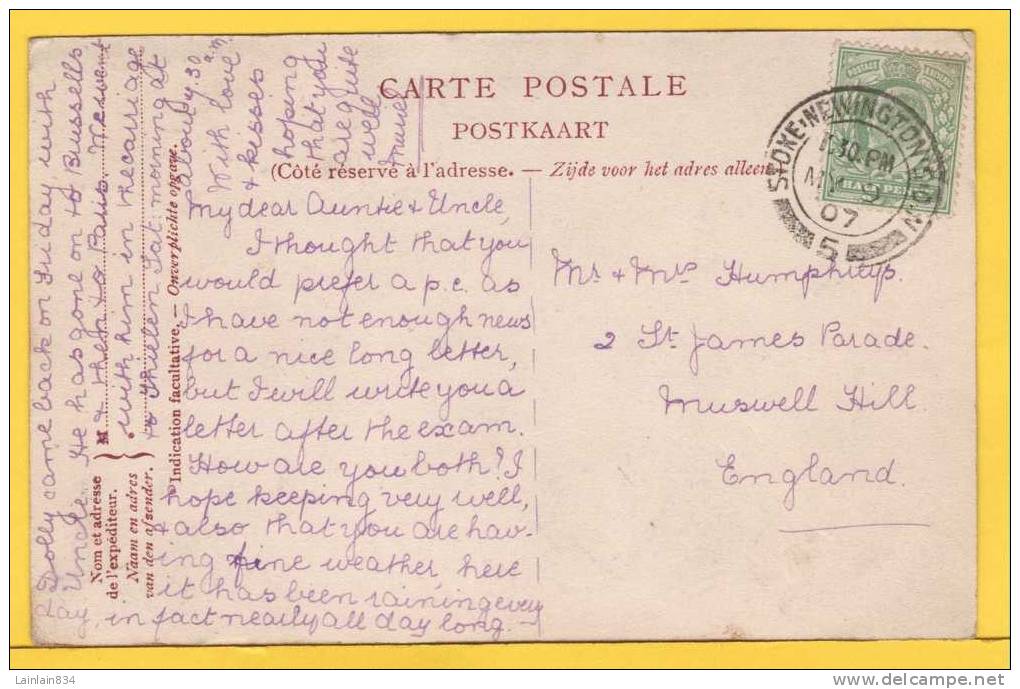 CARTE POSTALE
POSTKAART
(Côté réservé à l'adresse. — Zijde voor het adres alleen
STOKE-NEWINGTON
.30.PM
9
07
5
My dear Auntie & Uncle,
I thought that you
would prefer a p.c. as
I have not enough news
for a nice long letter,
but I will write you a
letter after the exam.
How are you both? I
hope keeping very well,
& also that you are hav-
ing fine weather, here
it has been raining every
day, in fact nearly all day long. —
Dolly came back on Friday with
Uncle. He has gone on to Bussells
& then to Paris. We went
with him in the carriage
to Thielen Sat. morning at
about 7.30 a.m.
With love
& kisses
hoping
that you
are quite
well
Muriel
Mr. & Mrs Humphreys.
2 St. James Parade.
Muswell Hill.
England.
Nom et adresse
de l'expéditeur.
Naam en adres
van den afsender.
M
Indication facultative. — Onverplichte opgave.
Lainlain834
delcampe.net